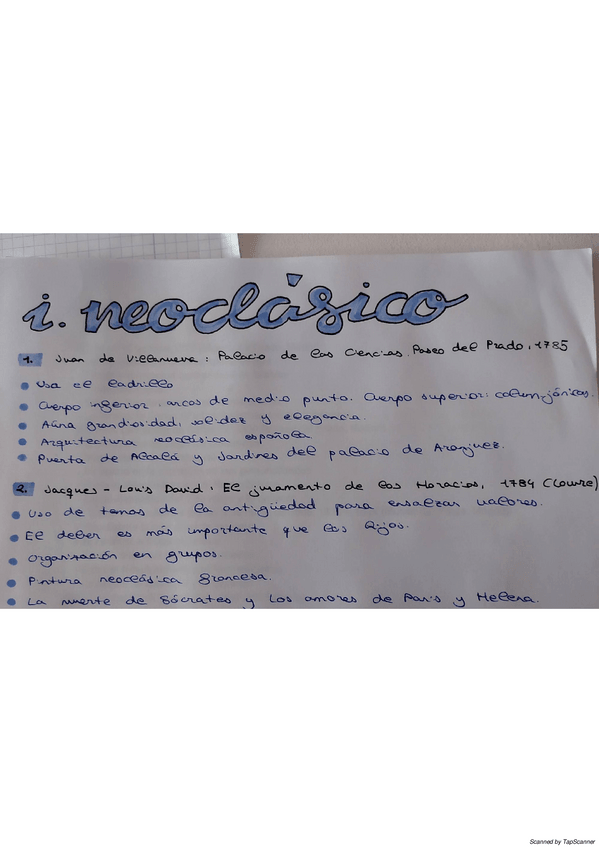 i. neoclásico
1. Juan de Villanueva: Palacio de las Ciencias. Paseo del Prado, 1785
Usa el ladrillo
Cuerpo inferior: arcos de medio punto. Cuerpo superior: column. jónicas.
Aúna grandiosidad, solidez y elegancia.
Arquitectura neoclásica española.
Puerta de Alcalá y Jardines del palacio de Aranjuez.
2. Jacques-Louis David: El juramento de los Horacios, 1784 (Louvre)
Uso de temas de la antigüedad para ensalzar valores.
El deber es más importante que los hijos.
Organización en grupos.
Pintura neoclásica francesa.
La muerte de Sócrates y Los amores de Paris y Helena.
Scanned by TapScanner